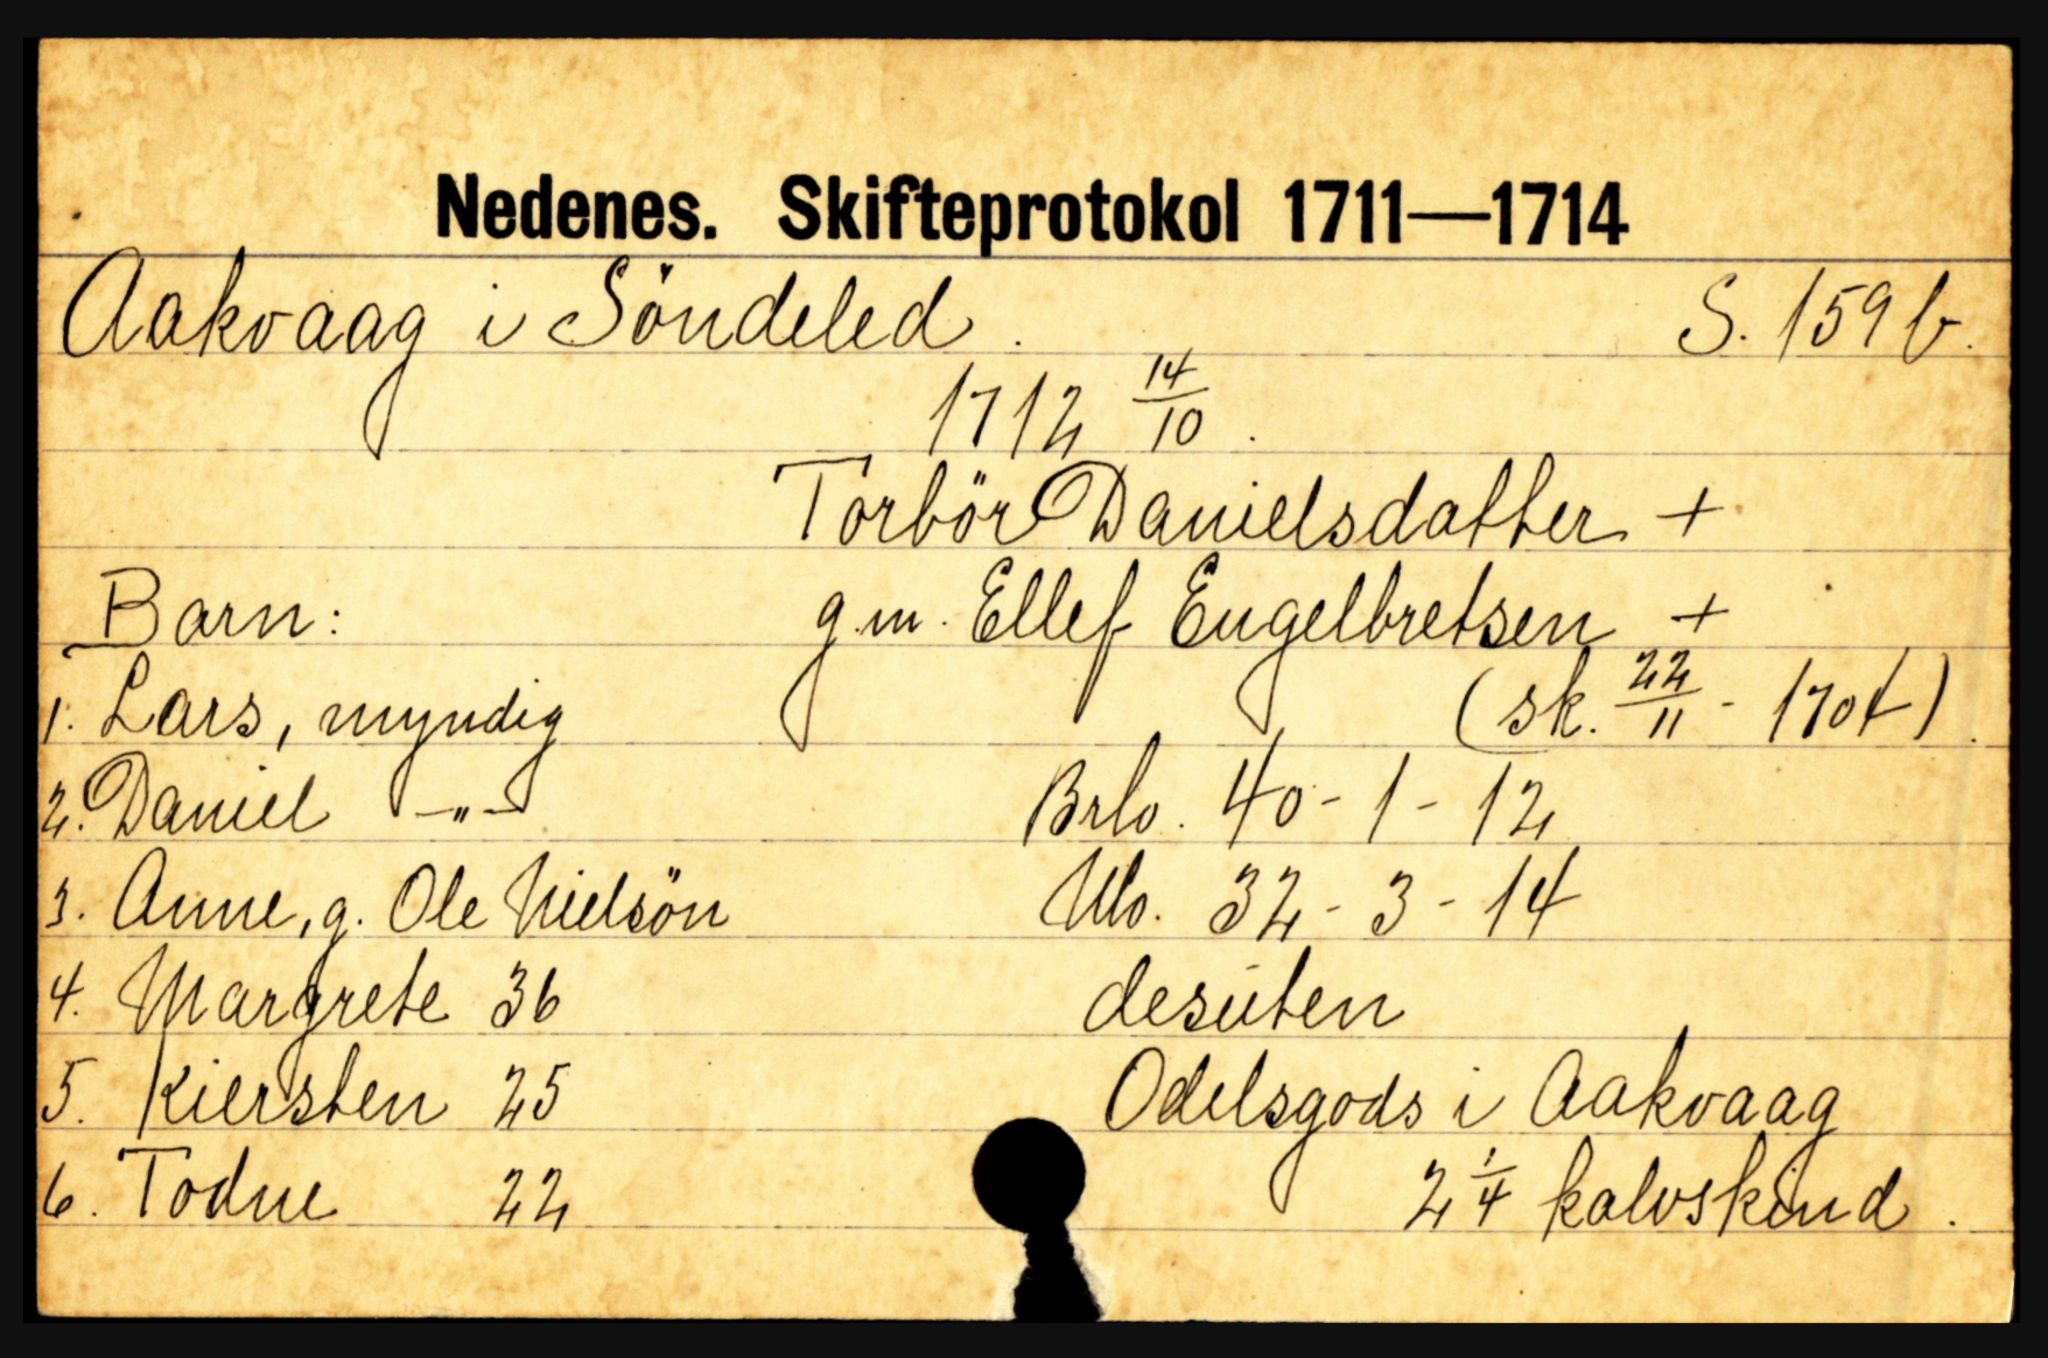 Nedenes. Skifteprotokol 1711—1714
Aakvaag i Söndeled. S. 159 b.
1712 14/10.
Torbör Danielsdatter +
Barn: g.m. Ellef Engelbretsen +
1. Lars, myndig (sk. 22/11 - 1704).
2. Daniel -"- Brlo. 40 - 1 - 12
3. Anne, g. Ole Nielsön Nlo. 32 - 3 - 14
4. Margrete 36 desuten
5. Kiersten 25 Odelsgods i Aakvaag
6. Todne 22 2 1/4 kalvskind.